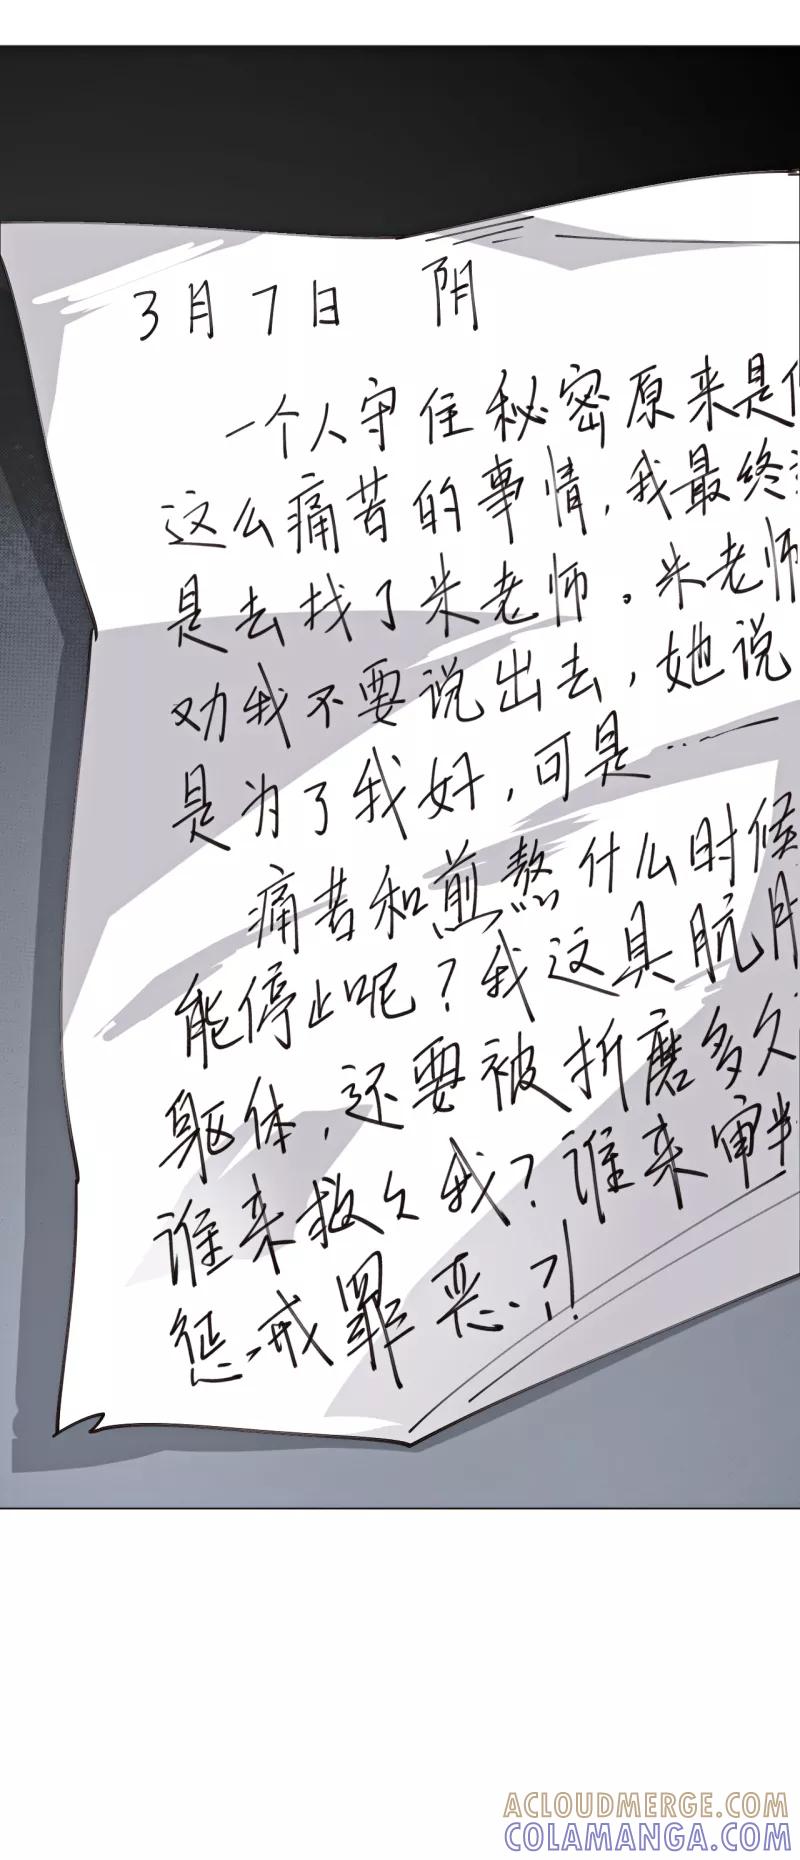 3月7日 阴
一个人守住秘密原来是
这么痛苦的事情,我最终
是去找了朱老师。朱老师
劝我不要说出去,她说
是为了我好,可是……
痛苦和煎熬什么时候
能停止呢?我这具肮
躯体,还要被折磨多久
谁来救久我?谁来审判
惩戒罪恶?!
ACLOUDMERGE.COM
COLAMANGA.COM